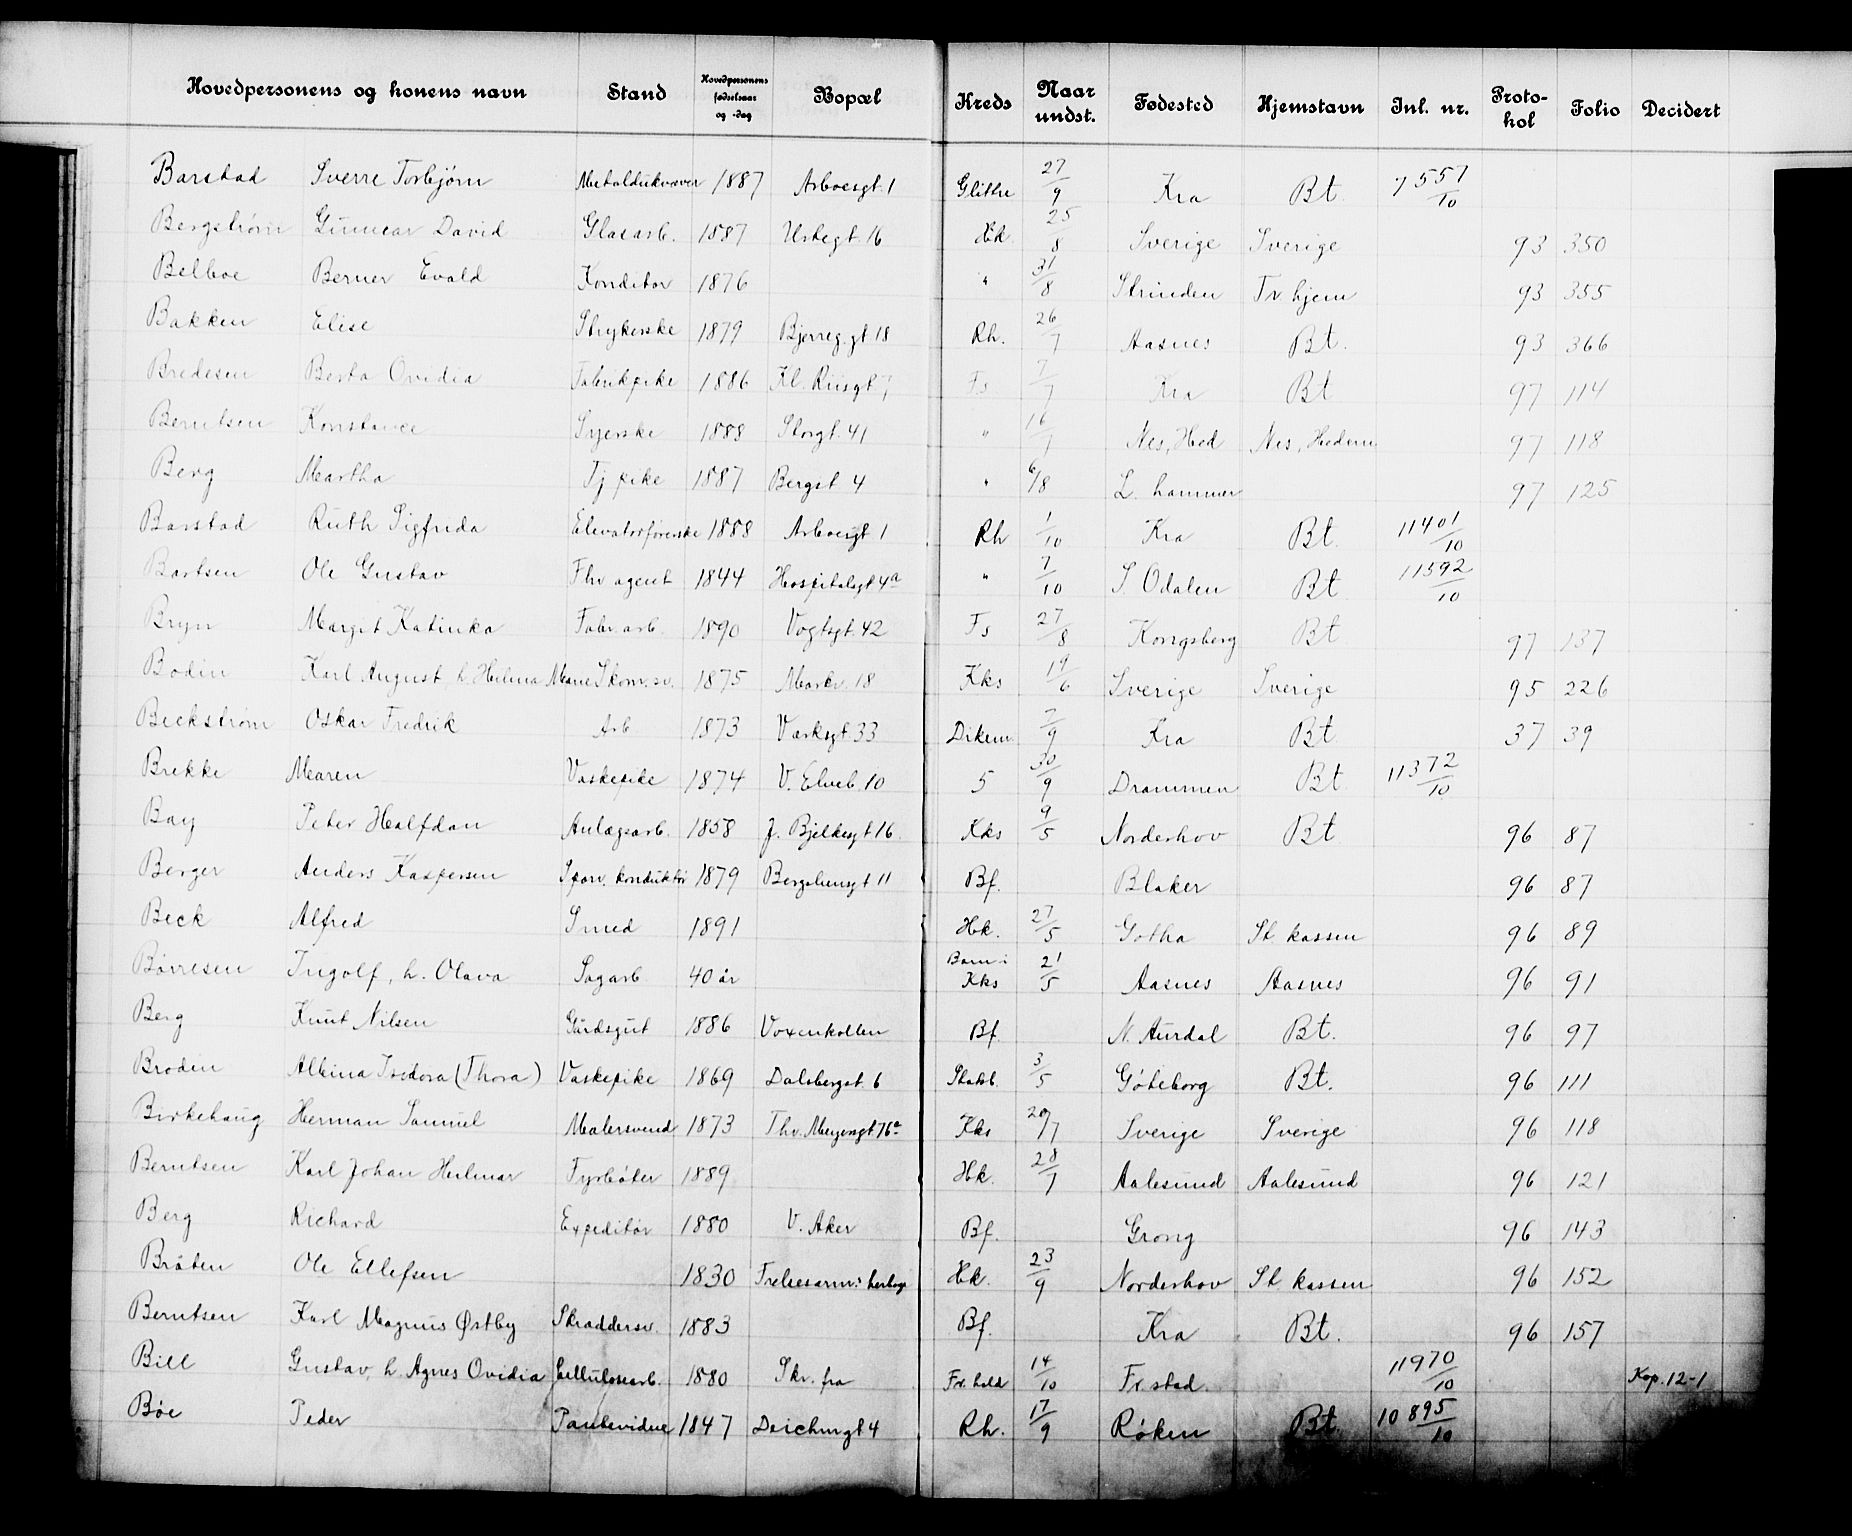 Hovedpersonens og konens navn Stand Hovedpersonens fødselsaar og -dag Bopæl Kreds Naar undst. Fødested Hjemstavn Inl. nr. Protokol Folio Decidert
Barstad Sverre Torbjørn Metaldukvæver 1887 Arboesgt. 1 Glitre 27/9 Kra Bt. 7557/10
Bergstrøm Gunnar David Glasarb. 1887 Urtegt. 16 Hk. 25/8 Sverige Sverige 93 350
Belboe Berner Evald Konditor 1876 " 31/8 Strinden Tr.hjem 93 355
Bakken Elise Strykerske 1879 Bjerreg.gt 18 Rh. 26/7 Aasnes Bt. 93 366
Bredesen Berta Ovidia Fabrikpike 1886 Kl. Riisgt 7 Fs 7/7 Kra Bt 97 114
Berntsen Konstance Syerske 1888 Storgt. 41 " 16/7 Nes, Hed Nes, Hedem 97 118
Berg Martha Tj pike 1887 Bergst 4 " 6/8 L. hammer 97 125
Barstad Ruth Sigfrida Elevatorførerske 1888 Arboesgt 1 Rh 1/10 Kra Bt. 11401/10
Bartsen Ole Gustav Thv agent 1844 Hospitalsgt 4a " 7/10 S Odalen Bt. 11592/10
Bryn Margit Katinka Fabr.arb. 1890 Vogtsgt. 42 Fs 27/8 Kongsberg Bt 97 137
Bodin Karl August h. Helma Marie Skom.sv. 1875 Markv. 18 Kks 19/6 Sverige Sverige 95 226
Beckstrøm Oskar Fredrik Arb 1873 Værksgt. 33 Dikem 2/9 Kra Bt. 37 39
Brekke Maren Vaskepike 1874 V. Elveb. 10 5 30/9 Drammen Bt 11372/10
Bay Peter Halfdan Anlægsarb. 1858 J. Bjelkesgt 16. Kks 9/5 Norderhov Bt 96 87
Berger Anders Kaspersen Sporv. konduktør 1879 Bergsliensgt 11 Bf. Blaker 96 87
Beck Alfred Smed 1891 Hk. 27/5 Gotha St kassen 96 89
Børresen Ingolf, h. Olava Sagarb. 40 år Barn i Kks 21/5 Aasnes Aasnes 96 91
Berg Knut Nilsen Gårdsgut 1886 Voxenkollen Bf. N. Aurdal Bt. 96 97
Brodin Albina Isidora (Thora) Vaskepike 1869 Dalsbergst. 6 Stabb. 3/5 Göteborg Bt. 96 111
Birkehaug Herman Samuel Malersvend 1873 Thv. Meyersgt 76a Kks 20/7 Sverige Sverige 96 118
Berntsen Karl Johan Heilmar Fyrbøter 1889 Hk. 28/7 Aalesund Aalesund 96 121
Berg Richard Expeditør 1880 V. Aker Bf. Grong 96 143
Bråten Ole Ellefsen 1830 Frelsesarm.s herberge Hk. 23/9 Norderhov St. kassen 96 152
Berntsen Karl Magnus Østby Skræddersv. 1883 Bf. Kra Bt. 96 157
Bill Gustav, h. Agnes Ovidia Cellulosearb. 1880 Skr. fra Fr.hald 14/10 Fr.stad. 11970/10 Kop. 12-1
Bøe Peder 1847 Deichmgt 4 Rh. 17/9 Røken Bt. 10895/10